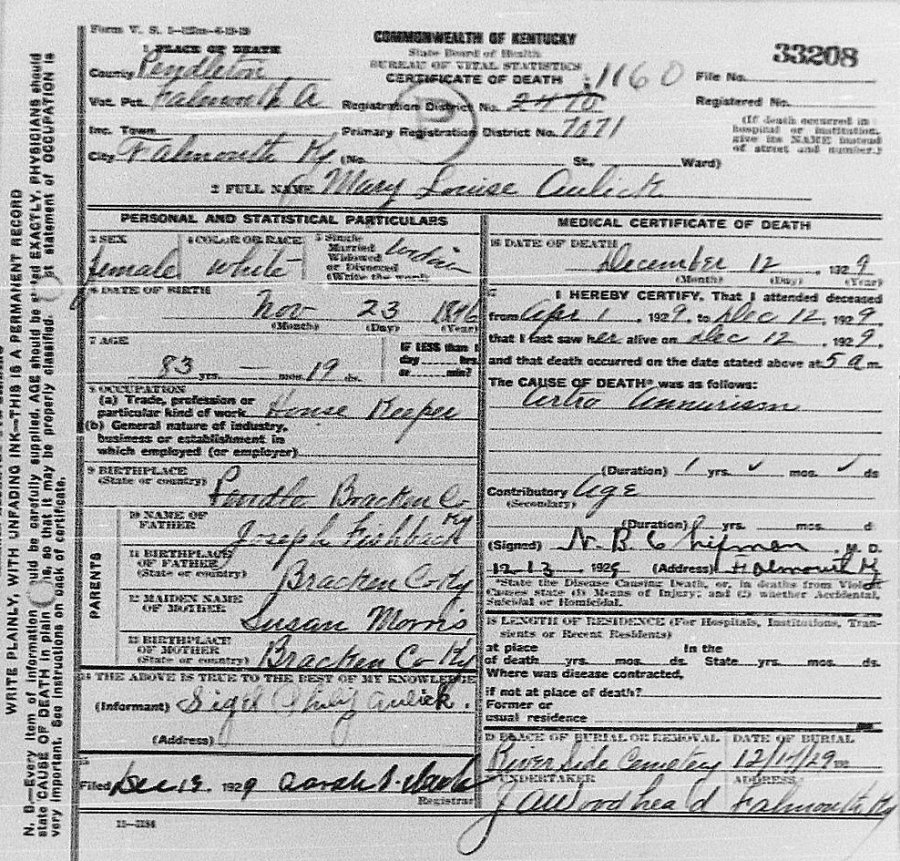 Form V. S. 1-
COMMONWEALTH OF KENTUCKY
State Board of Health
BUREAU OF VITAL STATISTICS
CERTIFICATE OF DEATH
33208
1 PLACE OF DEATH
County Pendleton
Vot. Pct. Falmouth A
Inc. Town
City Falmouth Ky. (No. St., Ward)
Registration District No. 2470 1160
Primary Registration District No. 7071
File No.
Registered No.
(If death occurred in
hospital or institution,
give its NAME instead
of street and number.)
2 FULL NAME Mary Louise Aulick
PERSONAL AND STATISTICAL PARTICULARS
3 SEX
female
4 COLOR OR RACE
white
5 Single
Married
Widowed
or Divorced
(Write the word)
6 DATE OF BIRTH
Nov 23 1846
(Month) (Day) (Year)
7 AGE
83 yrs. — mos. 19 ds.
IF LESS than 1
day hrs.
or min?
8 OCCUPATION
(a) Trade, profession or
particular kind of work House Keeper
(b) General nature of industry,
business or establishment in
which employed (or employer)
9 BIRTHPLACE
(State or country) Pendle Bracken Co Ky
PARENTS
10 NAME OF
FATHER
Joseph Fishback
11 BIRTHPLACE
OF FATHER
(State or country) Bracken Co Ky
12 MAIDEN NAME
OF MOTHER
Susan Morris
13 BIRTHPLACE
OF MOTHER
(State or country) Bracken Co Ky
14 THE ABOVE IS TRUE TO THE BEST OF MY KNOWLEDGE
(Informant) Sigel Philip Aulick.
(Address)
15
Filed Dec 1 1929 Sarah
Registrar
MEDICAL CERTIFICATE OF DEATH
16 DATE OF DEATH
December 12, 1929
(Month) (Day) (Year)
17 I HEREBY CERTIFY, That I attended deceased
from Apr 1 1929, to Dec 12, 1929,
that I last saw her alive on Dec 12, 1929.
and that death occurred on the date stated above at 5 a m.
The CAUSE OF DEATH* was as follows:
Annurism
(Duration) 1 yrs. mos. ds
Contributory Age
(Secondary)
(Duration) yrs. mos. d
(Signed) N. B. Chipman, M. D.
12-13 1929 (Address) Falmouth Ky
*State the Disease Causing Death, or, in deaths from Violent
Causes state (1) Means of Injury; and (2) whether Accidental,
Suicidal or Homicidal.
18 LENGTH OF RESIDENCE (For Hospitals, Institutions, Tran-
sients or Recent Residents)
at place In the
of death yrs. mos. ds. State yrs. mos. ds.
Where was disease contracted,
if not at place of death?
Former or
usual residence
19 PLACE OF BURIAL OR REMOVAL
River Side Cemetery
DATE OF BURIAL
UNDERTAKER
J A Woodhead
ADDRESS
Falmouth Ky
WRITE PLAINLY, WITH UNFADING INK—THIS IS A PERMANENT RECORD
N. B.—Every item of information should be carefully supplied. AGE should be stated EXACTLY. PHYSICIANS should
state CAUSE OF DEATH in plain terms, so that it may be properly classified. statement of OCCUPATION is
very important. See instructions on back of certificate.